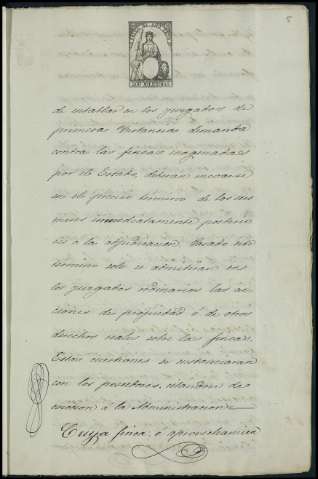 5
de entablar en los juzgados de
primera Instancia demanda
contra las fincas enagenadas
por el Estado, deberan incoarse
en el preciso término de los seis
meses inmediatamente posterio
res á la adjudicacion. Pasado este
término solo se admitiran en
los juzgados ordinarios las ac
ciones de propiedad ó de otros
derechos reales sobre las fincas.
Estas cuestiones se sustanciaran
con los poseedores, citandose de
eviccion á la Administracion.
Cuya finca ó aprovechamien